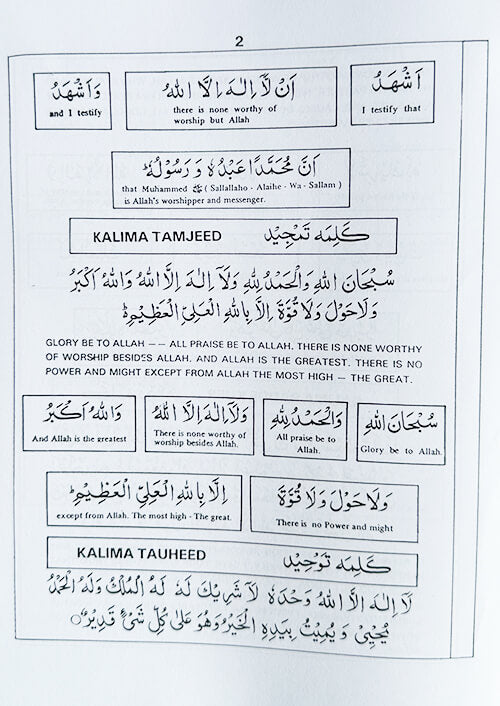 2
اَشْهَدُ
I testify that
اَنْ لَّآ اِلٰهَ اِلَّا اللهُ
there is none worthy of
worship but Allah
وَاَشْهَدُ
and I testify
اَنَّ مُحَمَّدًا عَبْدُهٗ وَرَسُوْلُهٗ
that Muhammed ﷺ ( Sallallaho - Alaihe - Wa - Sallam )
is Allah's worshipper and messenger.
KALIMA TAMJEED كَلِمَه تَمْجِيْد
سُبْحَانَ اللهِ وَالْحَمْدُ لِلّٰهِ وَلَآ اِلٰهَ اِلَّا اللهُ وَاللهُ اَكْبَرُ
وَلَاحَوْلَ وَلَا قُوَّةَ اِلَّا بِاللهِ الْعَلِيِّ الْعَظِيْمِ ط
GLORY BE TO ALLAH –– ALL PRAISE BE TO ALLAH. THERE IS NONE WORTHY
OF WORSHIP BESIDES ALLAH. AND ALLAH IS THE GREATEST. THERE IS NO
POWER AND MIGHT EXCEPT FROM ALLAH THE MOST HIGH – THE GREAT.
سُبْحَانَ اللهِ
Glory be to Allah.
وَالْحَمْدُ لِلّٰهِ
All praise be to
Allah.
وَلَآ اِلٰهَ اِلَّا اللهُ
There is none worthy of
worship besides Allah.
وَاللهُ اَكْبَرُ
And Allah is the greatest
وَلَاحَوْلَ وَلَا قُوَّةَ
There is no Power and might
اِلَّا بِاللهِ الْعَلِيِّ الْعَظِيْمِ ط
except from Allah. The most high - The great.
KALIMA TAUHEED كَلِمَه تَوْحِيْد
لَآ اِلٰهَ اِلَّا اللهُ وَحْدَهٗ لَا شَرِيْكَ لَهٗ لَهُ الْمُلْكُ وَلَهُ الْحَمْدُ
يُحْيِيْ وَيُمِيْتُ بِيَدِهِ الْخَيْرُ وَهُوَ عَلٰى كُلِّ شَيْءٍ قَدِيْرٌ